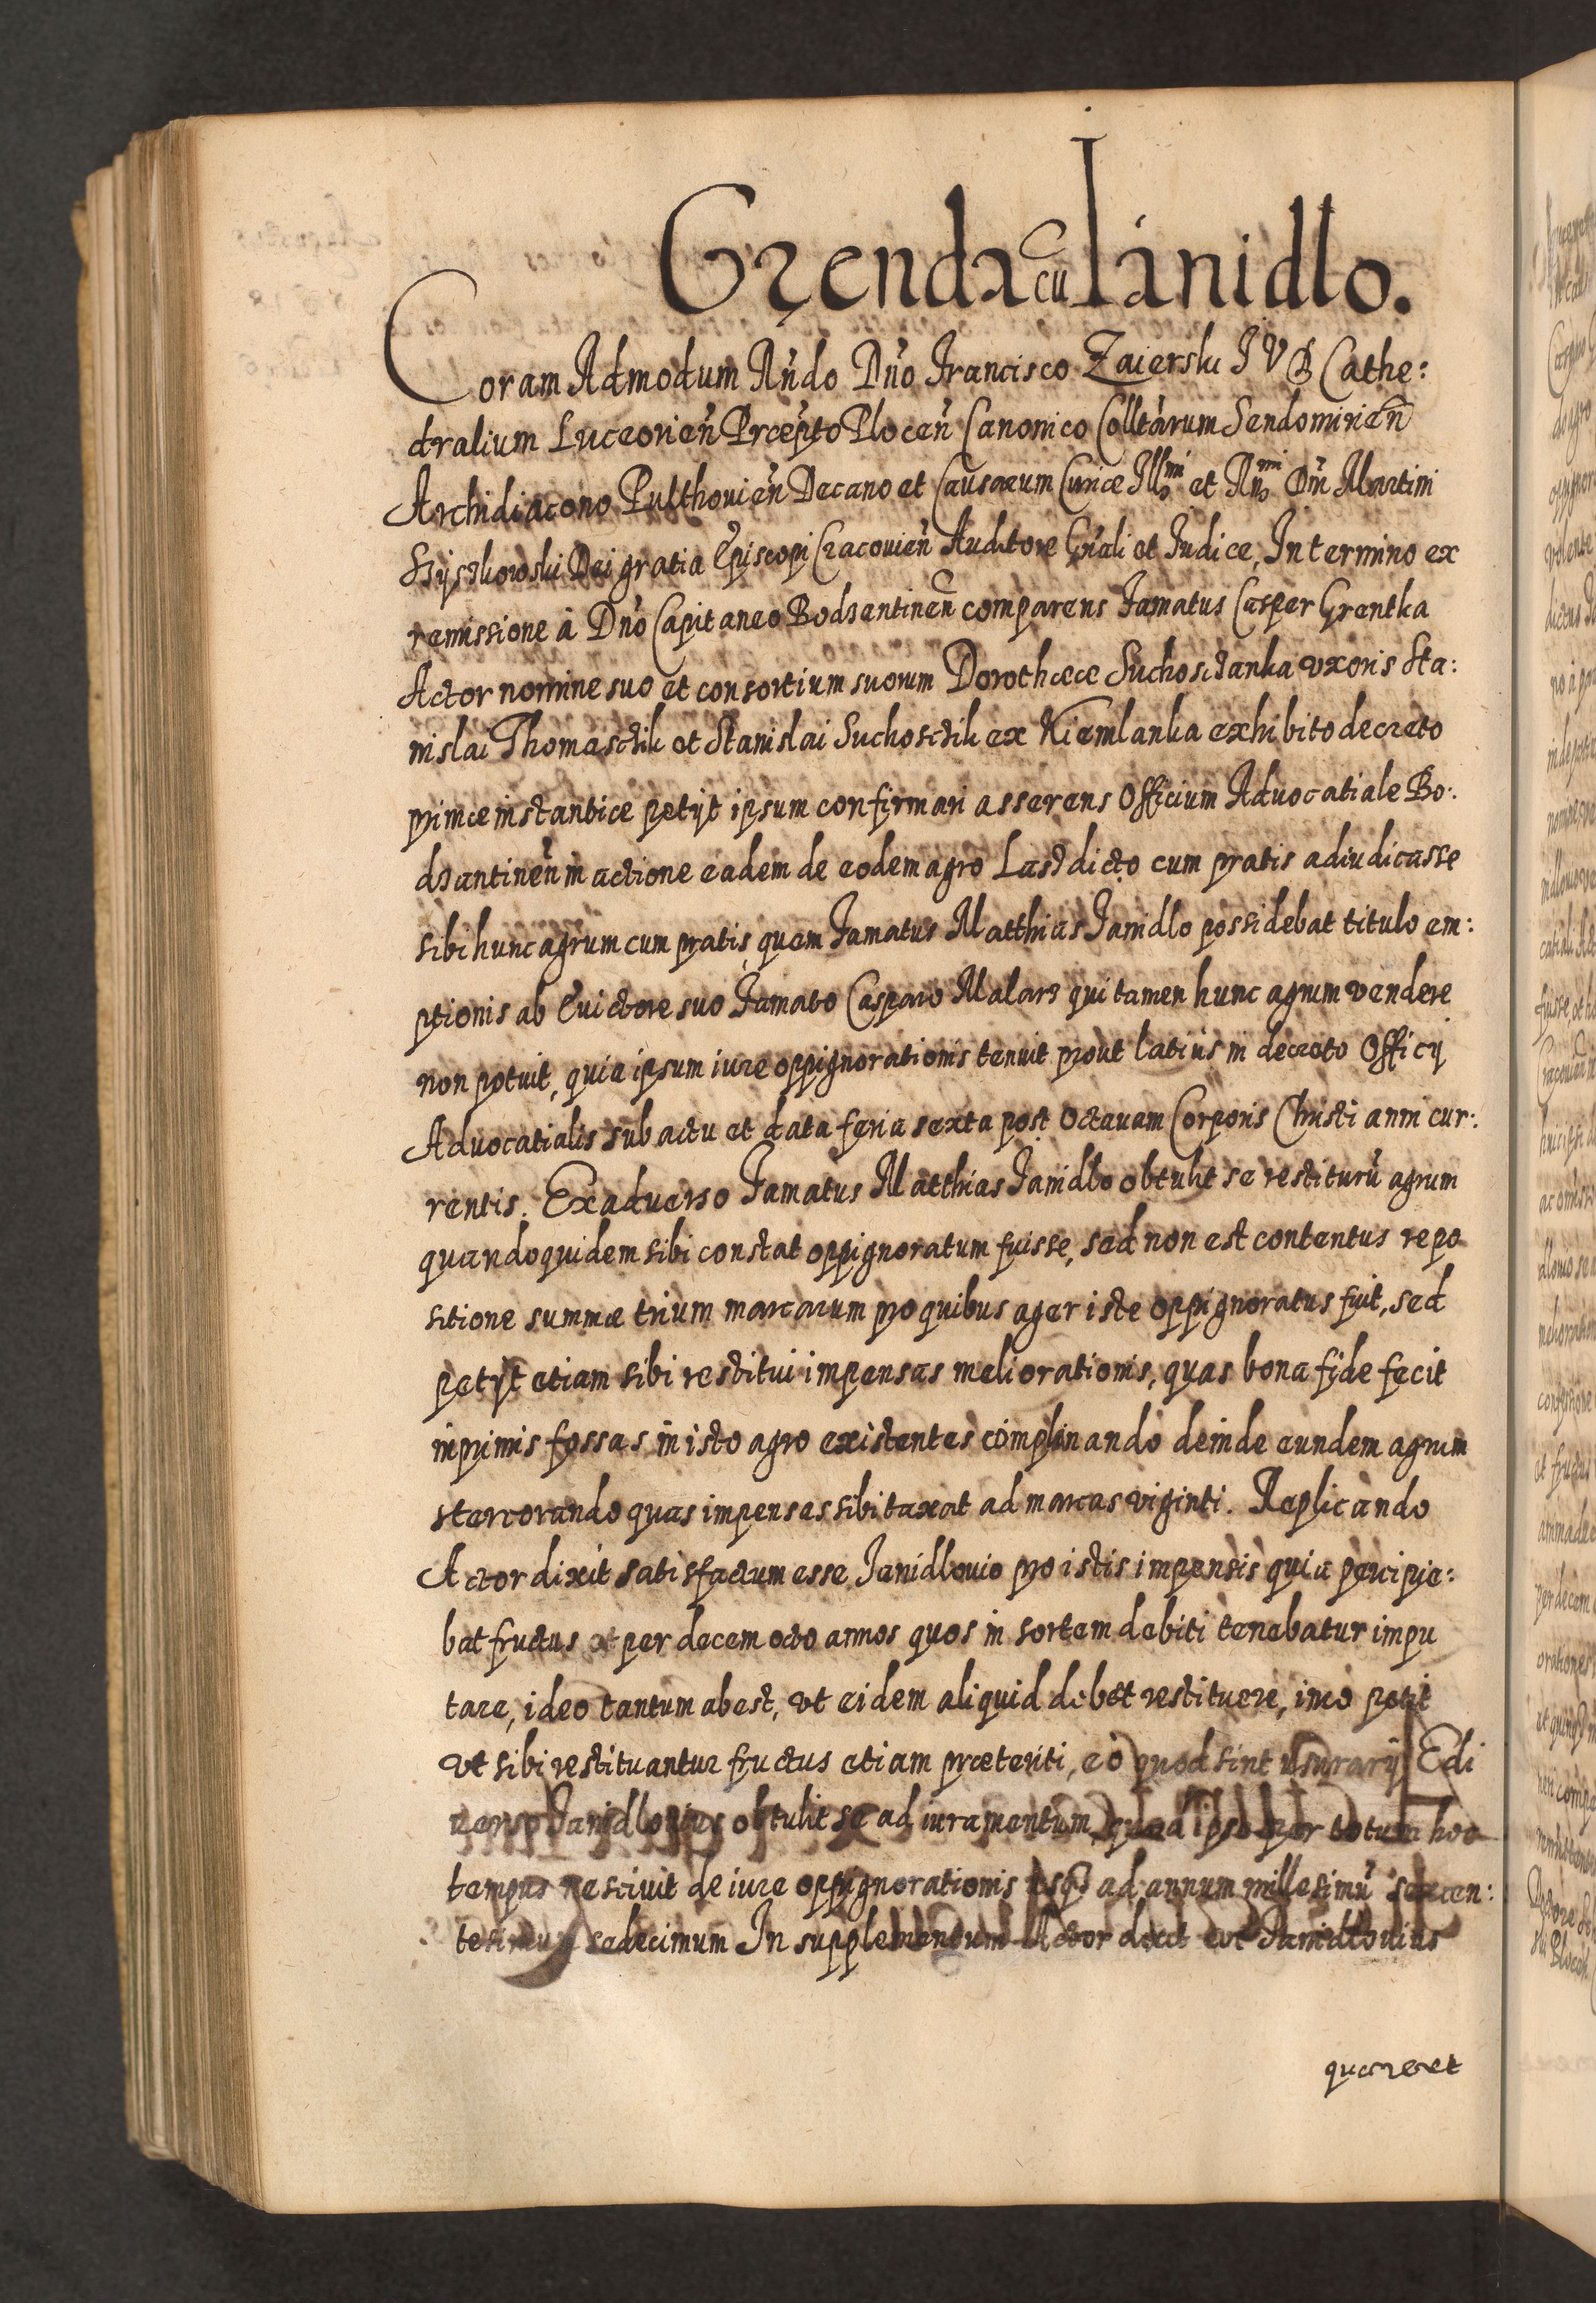 Grenda cu Ianidlo.
Coram Admodum Rńdo Dńo Francisco Zaierski I V D Cathe:
dralium Luceorień Præpto Ploceń Canonico Colltarum Sendomirień
Archidiacono Pulthouień Decano et Causarum Curiæ Illmi et Rńmi Dńi Martini
Szyszkowski Dei gratia Episcopi Cracouień Auditore Gńali et Iudice, In termino ex
remissione à Dńo Capitaneo Bodzentineń comparens Famatus Casper Grentka
Actor nomine suo et consortium suorum Dorotheæ Suchosczanka vxoris Sta:
nislai Thomasczik et Stanislai Suchosczik ex Kiemlanka exhibito decreto
primæ instantiæ petÿt ipsum confirmari asserens Officium Aduocatiale Bo:
dzantineń in actione eadem de eodem agro Lasz dicto cum pratis adiudicasse
sibi hunc agrum cum pratis, quem Famatus Matthias Janidlo possidebat titulo em:
ptionis ab Euictore suo Famato Casparo Malarz qui tamen hunc agrum vendere
non potuit, quia ipsum iure oppignorationis tenuit prout latius in decreto Officij
Aduocatialis sub actu et data feria sexta post Octauam Corporis Christi anni cur:
rentis. Ex aduerso Famatus Matthias Janidlo obtulit se restiturũ agrum
quandoquidem sibi constat oppignoratum fuisse, sed non est contentus repo
sitione summæ trium marcarum pro quibus ager iste oppignoratus fuit, sed
petÿt etiam sibi restitui impensas meliorationis, quas bona fide fecit
inprimis fossas in isto agro existentes complanando deinde eundem agrum
stercorando quas impensas sibi taxat ad marcas viginti. Replicando
Actor dixit satisfactum esse Janidlouio pro istis impensis quia percipie:
bat fructus et per decem octo annos quos in sortem debiti tenebatur impu
tare, ideo tantum abest, vt eidem aliquid debet restituere, imo petit
vt sibi restituantur fructus etiam præteriti, eo quod sint vsurarij E di
uerso Janidlouius obtulit se ad iuramentum, quod ipse per totum hoc
tempus nesciuit de iure oppignorationis vsqʒ ad annum millesimũ sexcen:
tesimum sedecimum In supplementum Actor dixit vt Janidlouius
quæreret